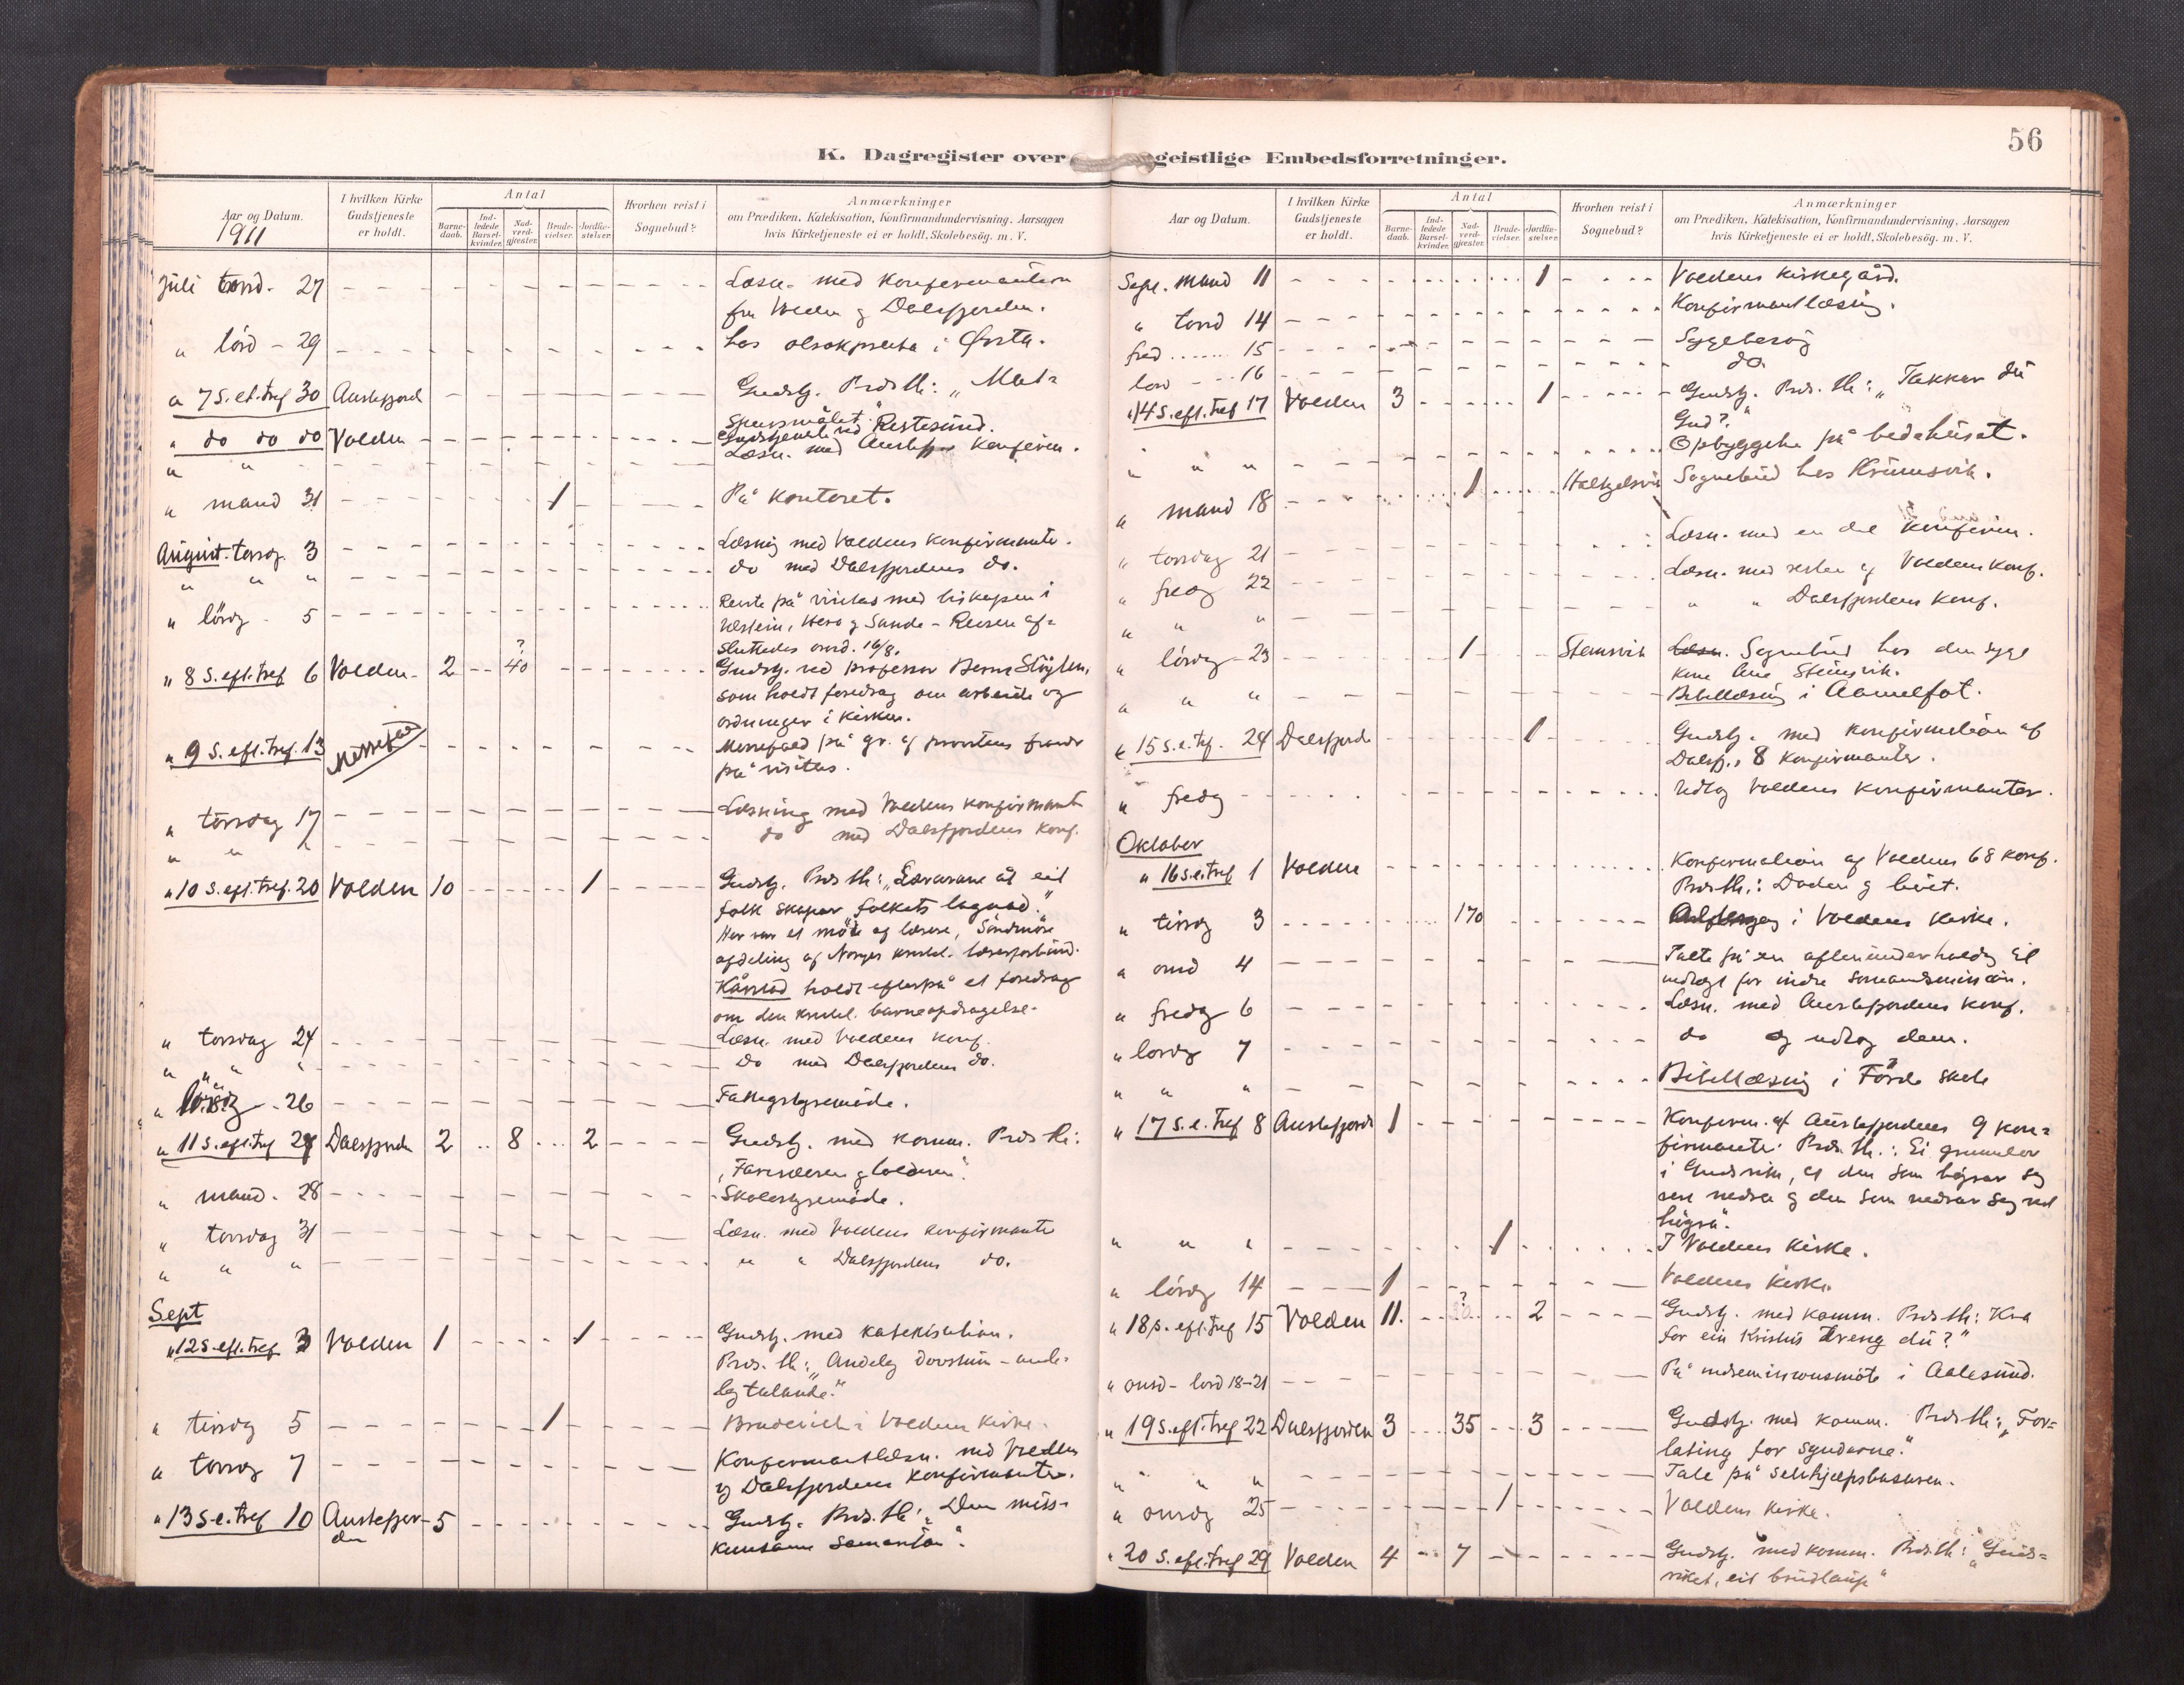 56
K. Dagregister over geistlige Embedsforretninger.
Aar og Datum.
1911
I hvilken Kirke Gudstjeneste er holdt.
Antal
Barne-daab.
Ind-ledede Barsel-kvinder.
Nad-verd-gjester.
Brude-vielser.
Jordfæ-stelser.
Hvorhen reist i Sognebud?
Anmærkninger
om Prædiken, Katekisation, Konfirmandundervisning, Aarsagen
hvis Kirketjeneste ei er holdt, Skolebesög. m. V.
Juli torsd. 27 Læsn. med konfirmanterne
fra Volden og Dalsfjorden.
" lörd - 29 i Ørsta.
" 7 S. et. tref 30 Austefjord Gudstj. Præs. th: "Mat-
spursmålet."
" do do do Volden Gudstjeneste ved Restesund.
" " Læsn. med Austefj. konfirm.
" mand 31 1 På kontoret.
August. torsdg. 3 Læsning med Voldens konfirmanter.
" " " do med Dalsfjordens do.
" lördg. 5 Reiste på visitas med biskopen i
Ulstein, Herø og Sande - Reisen af-
sluttedes onsd. 16/8.
" 8 S. eft. tref 6 Volden 2 ? 40 Gudstj. ved professor Bernt Stöylen,
som holdt foredrag om arbeide og
ordninger i kirken.
" 9 S. eft. tref. 13 Messefald Messefald på gr. af provstens fravær
på visitas.
" torsdag 17 Læsning med Voldens konfirmanter
" " " do med Dalsfjordens konf.
" 10 S. eft. tref. 20 Volden 10 1 Gudstj. Præs th: "Lærarane åt eit
folk skapar folkets lagnad."
Her var et möte af lærere, Söndmöre
afdeling af Norges kristel. lærerforbund.
Kårstad holdt efterpå et foredrag
om den kristel. barneopdragelse.
" torsdag 24 Læsn. med Voldens konf.
" " " " do med Dalsfjordens do.
" lördg - 26 Fattigstyremöde.
" 11 S. eft. tref 27 Dalsfjorden 2 8 2 Gudstj. med komm. Præs th:
" mand. 28 Skolestyremöde.
" torsdag 31 Læsn. med Voldens konfirmanter
" " " " " Dalsfjordens do.
Sept
" 12 S. eft. tref 3 Volden 1 1 Gudstj. med katekisation.
Præs. th: "Andeleg dovstum - ande-
leg talande."
" tirsdg 5 1 Brudevielse i Voldens kirke.
" torsdg 7 Konfirmantlæsn. med Voldens
og Dalsfjordens konfirmanter.
" 13 S. e. tref 10 Austefjor-
den 5 Gudstj. Præs. th: "Den miss-
kunsame Samaritan".
Aar og Datum.
I hvilken Kirke Gudstjeneste er holdt.
Antal
Barne-daab.
Ind-ledede Barsel-kvinder.
Nad-verd-gjester.
Brude-vielser.
Jordfæ-stelser.
Hvorhen reist i Sognebud?
Anmærkninger
om Prædiken, Katekisation, Konfirmandundervisning, Aarsagen
hvis Kirketjeneste ei er holdt, Skolebesög. m. V.
Sept. mand 11 1 Voldens kirkegård.
" torsd 14 Konfirmantlæsing.
fred 15 Sygebesög
lörd 16 do.
" 14 S. eft. tref 17 Volden 3 1 Gudstj. Præs. th: "Takkar du
Gud?"
" " " Opbyggelse på bedehuset.
" mand 18 1 Sognebud hos
" torsdag 21 Læsn. med en del konfirm.
" fredg 22 Læsn. med resten af Voldens konf.
" " " " " Dalsfjordens konf.
" lördag 23 1 Steinsvik Læsn. Sognebud hos den syge
kone Ane Steinsvik.
" " " Bibellæsing i Aamelfot.
" 15 S. e. tref. 24 Dalsfjorden 1 Gudstj. med konfirmation af
Dalsfj.s 8 konfirmanter.
" fredg Udtog Voldens konfirmanter.
Oktober
" 16 S. e. tref 1 Volden Konfirmation af Voldens 68 konf.
Præs. th.: Döden og livet.
" tirsdg 3 170 Altergang i Voldens kirke.
" onsd 4 Talte på en aftenunderholdng til
indtægt for indre sömandsmission.
" fredg 6 Læsn. med Austefjordens konf.
" lördg 7 do og udtog dem.
" " " Bibellæsing i Förde skole
" 17 S. e. tref 8 Austefjord 1 Konfirm. af Austefjordens 9 kon-
firmanter. Præs. th.: Ei grunnlov
i Guds rike, at den som högrar seg
vert nedra og den som nedrar seg vert
högra".
" " " 1 I Voldens kirke.
" lördg 14 1 Voldens kirke.
" 18 s. eft. tref 15 Volden 11. ? 2 Gudstj. med komm. Præs th: Kva
for ein Kristus treng du?"
" onsd - lörd 18-21 På indremissionsmöte i Aalesund.
" 19 S. eft. tref 22 Dalsfjorden 3 35 3 Gudstj. med komm. Præs th: "For-
lating for syndarne."
" " " Tale på selvhjælpsbasaren.
" onsdg 25 1 Voldens kirke.
" 20 S. eft. tref 29 Volden 4 7 Gudstj. med komm. Præs. th: "Guds-
riket, eit brudlaup"